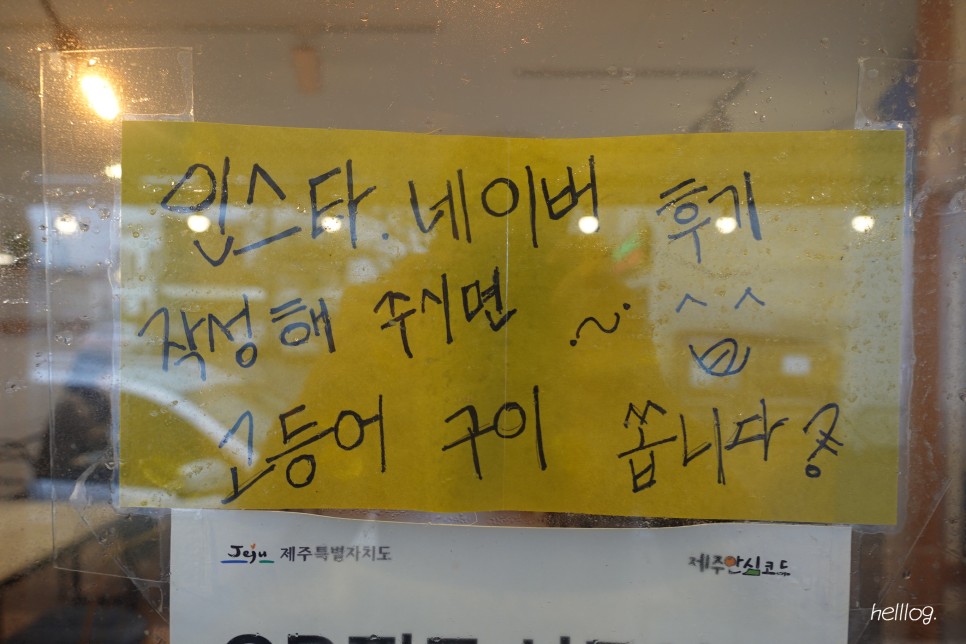 인스타.네이버 후기
작성해 주시면 ~.^^
고등어 구이 쏩니다
Jeju 제주특별자치도
제주안심코드
helllog.